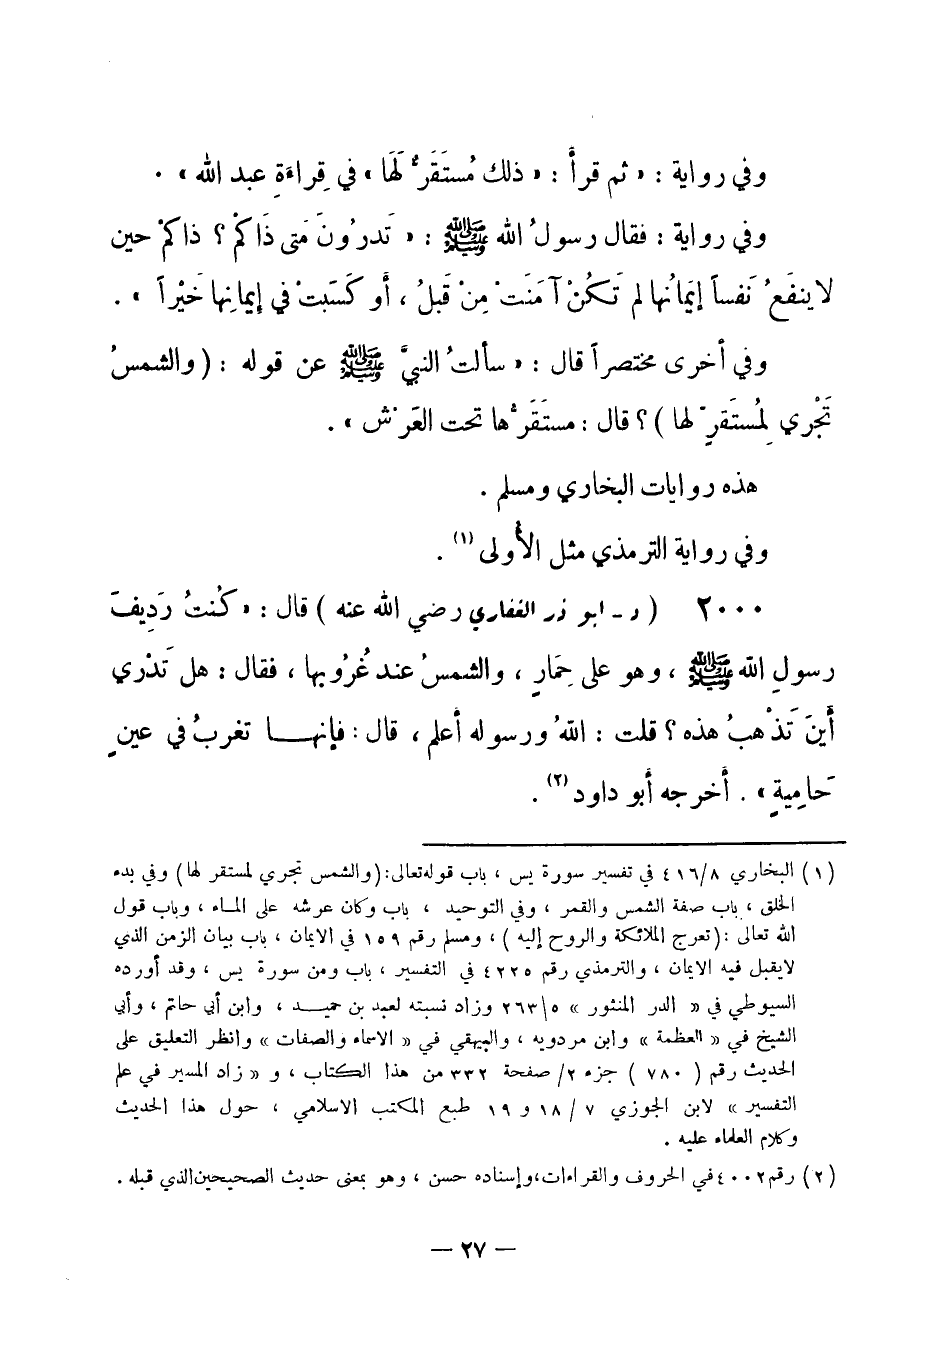 وفي رواية : « ثم قرأ : « ذلك مُستَقَرٌّ لَهَا » في قِراءَةِ عبد الله » .
وفي رواية : فقال رسولُ الله ﷺ : « تَدرُونَ مَتى ذَاكُمْ ؟ ذاكمْ حين
لاينفَعُ نَفساً إيمَانُها لم تَكُنْ آمَنَتْ مِنْ قَبلُ ، أو كَسَبتْ في إيمانِها خَيْراً » .
وفي أخرى مختصراً قال : « سألتُ النبيَّ ﷺ عن قوله : ( والشمسُ
تَجْري لِمُستَقَرٍّ لها ) ؟ قال : مستَقَرُّها تحت العَرْش » .
هذه روايات البخاري ومسلم .
وفي رواية الترمذي مثل الأُولى (١) .
٢٠٠٠ ( د - ابو ذر الغفاري رضي الله عنه ) قال : « كُنتُ رَدِيفَ
رسولِ الله ﷺ ، وهو على حِمَارٍ ، والشمسُ عند غُرُوبها ، فقال : هل تَدْري
أَينَ تَذْهبُ هذه ؟ قلت : اللهُ ورسوله أعلم ، قال : فإنهـــا تغربُ في عينٍ
حَامِيةٍ » . أخرجه أبو داود (٢) .
(١) البخاري ٤١٦/٨ في تفسير سورة يس ، باب قوله تعالى : (والشمس تجري لمستقر لها) وفي بدء
الخلق ، باب صفة الشمس والقمر ، وفي التوحيد ، باب وكان عرشه على المـاء ، وباب قول
الله تعالى : (تعرج الملائكة والروح إليه ) ، ومسلم رقم ١٥٩ في الايمان ، باب بيان الزمن الذي
لايقبل فيه الايمان ، والترمذي رقم ٤٢٢٥ في التفسير ، باب ومن سورة يس ، وقد أورده
السيوطي في « الدر المنثور » ٢٦٣/٥ وزاد نسبته لعبد بن حميـــد ، وابن أبي حاتم ، وأبي
الشيخ في « العظمة » وابن مردويه ، والبيهقي في « الاسماء والصفات » وانظر التعليق على
الحديث رقم ( ٧٨٠ ) جزء ٢/ صفحة ٣٣٢ من هذا الكتاب ، و « زاد المسير في علم
التفسير » لابن الجوزي ٧ / ١٨ و ١٩ طبع المكتب الاسلامي ، حول هذا الحديث
وكلام العلماء عليه .
(٢) رقم ٤٠٠٢ في الحروف والقراءات ، وإسناده حسن ، وهو بمعنى حديث الصحيحين الذي قبله .
— ٢٧ —